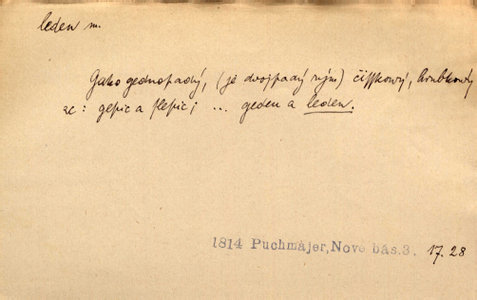 leden m.
Gako gednopadný, (jé dvojpadný rým) čísskowý, hrubkowý
zc: gepic a slepic; ... geden a leden.
1814 Puchmajer, Nové bás. 3. 17. 28